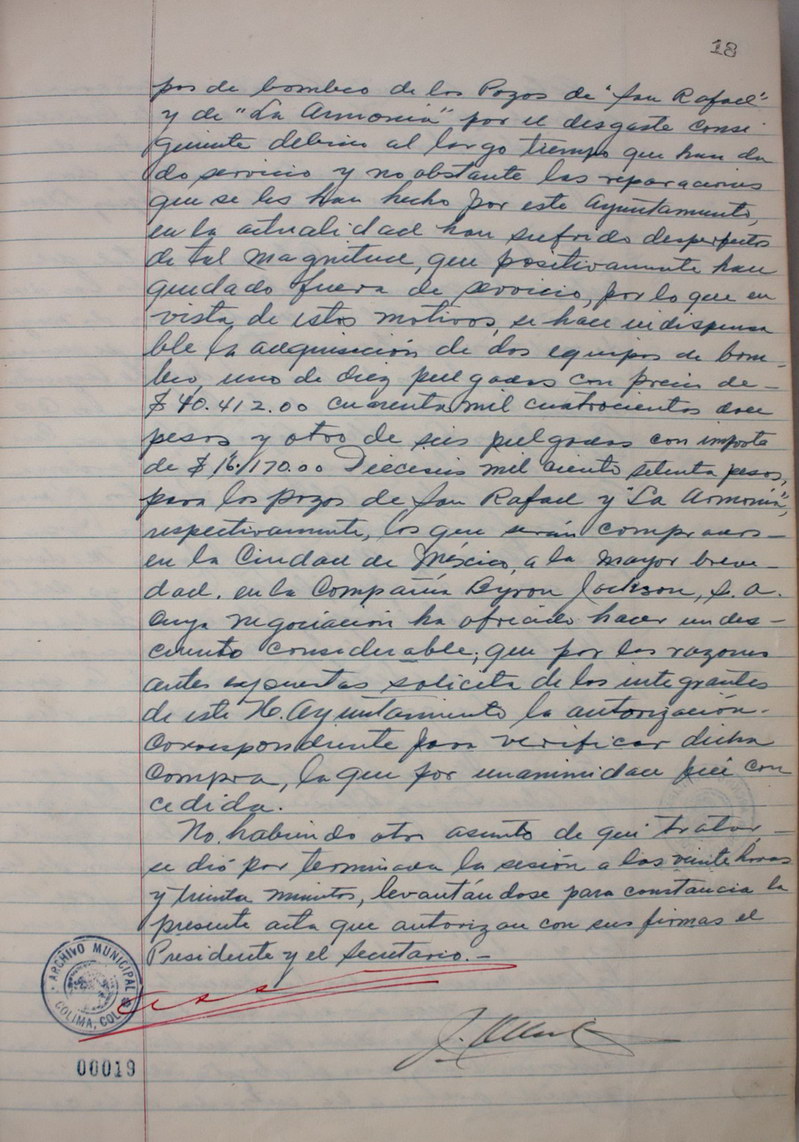 18
pos de bombeo de los Pozos de "San Rafael"
y de "La Armonía" por el desgaste consi
guiente debido al largo tiempo que han da
do servicio y no obstante las reparaciones
que se les han hecho por este Ayuntamiento,
en la actualidad han sufrido desperfectos
de tal magnitud, que positivamente han
quedado fuera de servicio, por lo que en
vista de estos motivos, se hace indispensa
ble la adquisición de dos equipos de bom-
beo, uno de diez pulgadas con precio de-
$ 40.412.00 cuarenta mil cuatrocientos doce
pesos y otro de seis pulgadas con importe
de $ 16.170.00 Dieciseis mil ciento setenta pesos,
para los pozos de San Rafael y "La Armonía",
respectivamente, los que serán comprados-
en la Ciudad de México, a la mayor breve-
dad. en la Compañía Byron Jackson, S. A.
cuya negociación ha ofrecido hacer un des-
cuento considerable; que por las razones
antes expuestas solicita de los integrantes
de este H. Ayuntamiento la autorización.
correspondiente para verificar dicha
compra, la que por unanimidad fué con
cedida.
No habiendo otro asunto de que tratar,
se dió por terminada la sesión a las veinte horas
y treinta minutos, levantándose para constancia la
presente acta que autorizan con sus firmas el
Presidente y el Secretario.-
ARCHIVO MUNICIPAL
COLIMA, COL.
00019